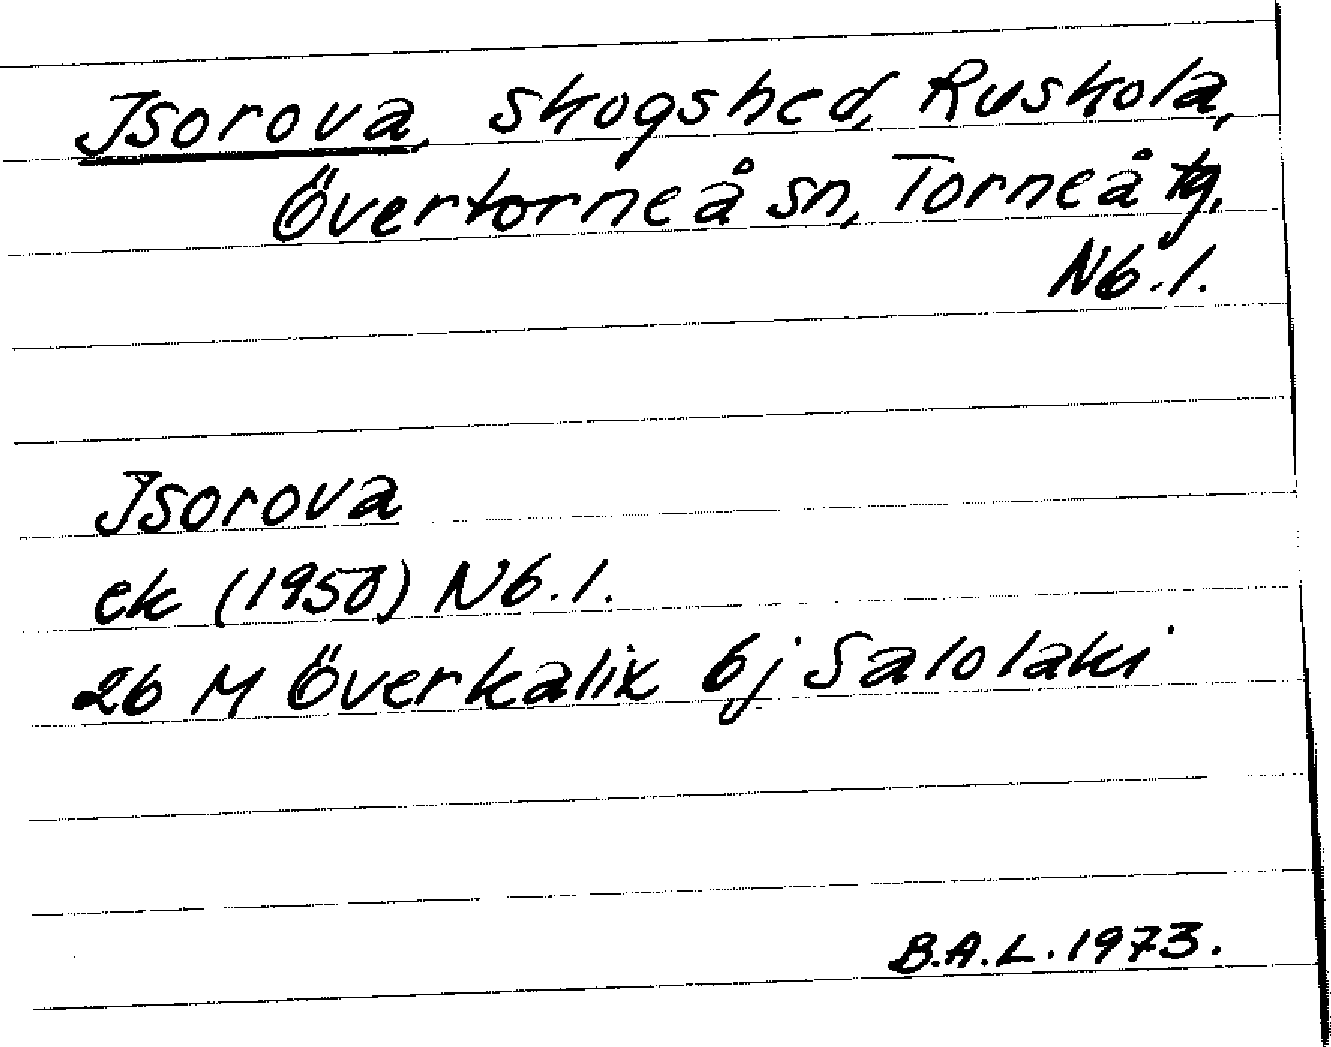 Isorova, skogshed, Ruskola,
Övertorneå sn, Torneå tg,
Nb.l.
Isorova
ek (1950) Nb.l.
26 M Överkalix 6j Salolaki
B.A.L. 1973.